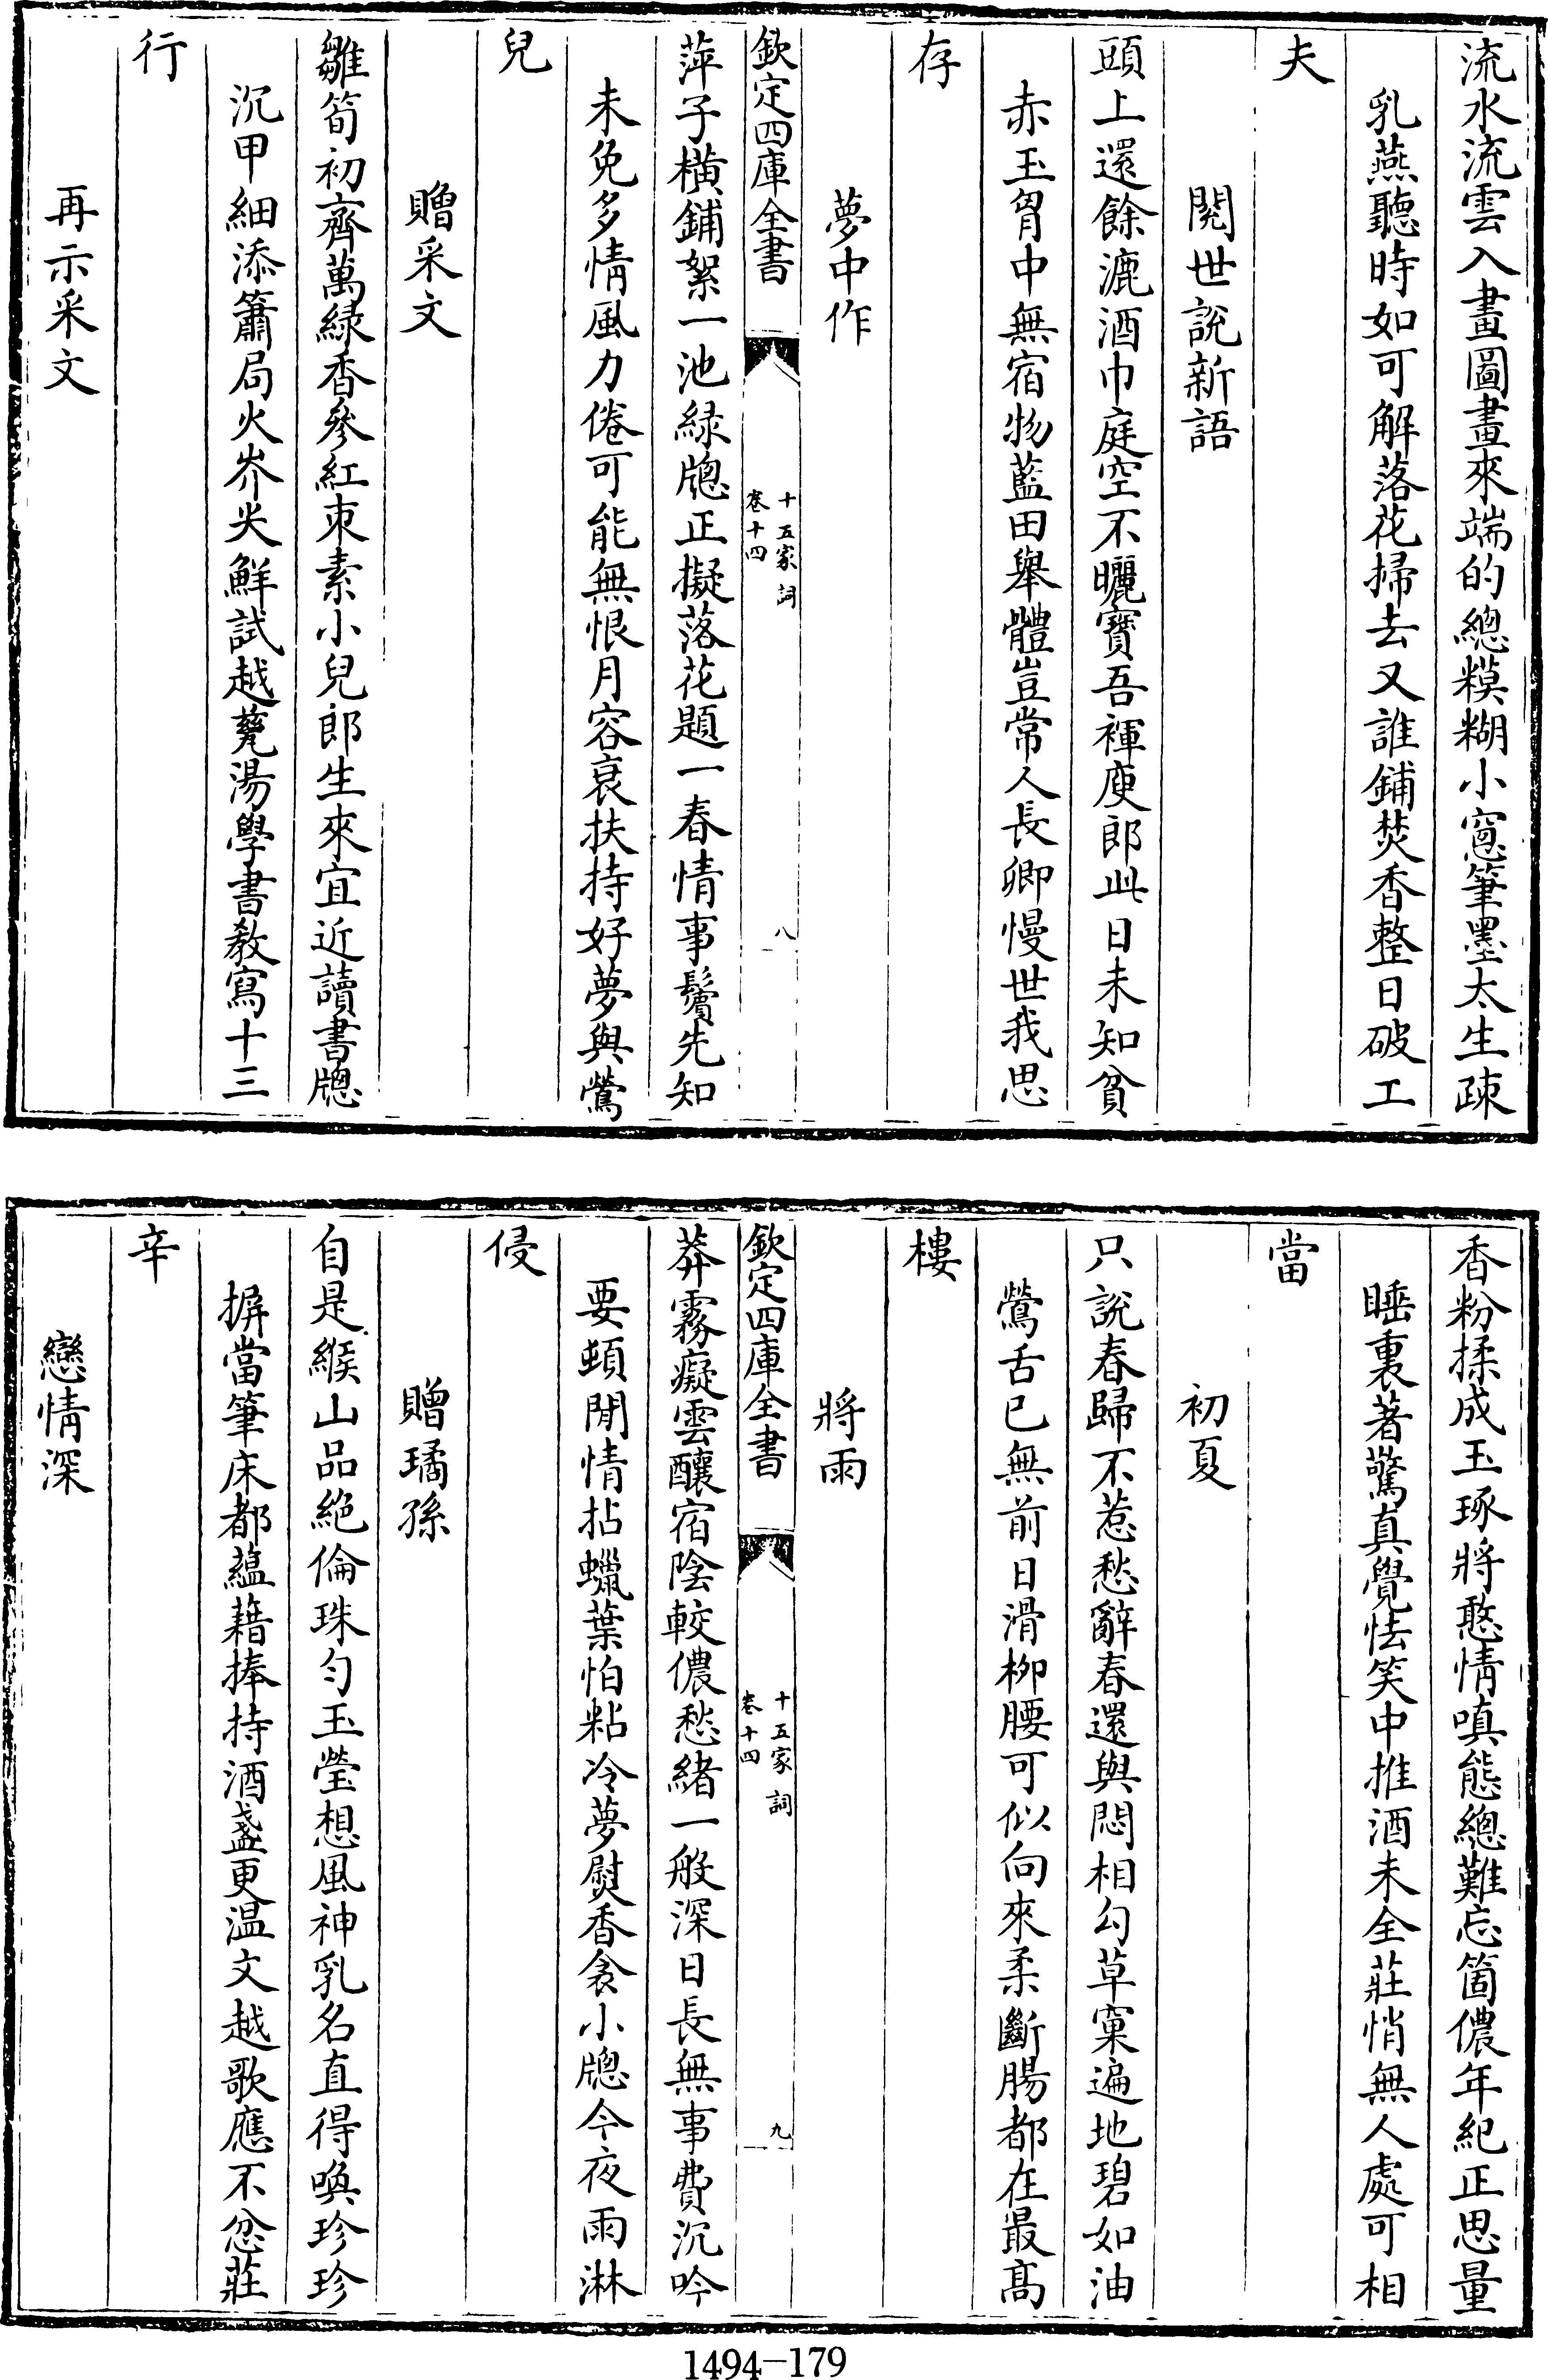 流水流雲入畫圖畫來端的總糢糊小窻筆墨太生疎
乳燕聽時如可解落花掃去又誰鋪焚香整日破工
夫
閱世說新語
頭上還餘漉酒巾庭空不曬寶吾褌庾郎此日未知貧
赤玉胷中無宿物藍田舉體豈常人長卿慢世我思
存
夢中作
欽定四庫全書
十五家詞
卷十四
八
萍子橫鋪絮一池緑牕正擬落花題一春情事鬢先知
未免多情風力倦可能無恨月容衰扶持好夢與鶯
兒
贈采文
雛筍初齊萬緑香參紅朿素小兒郎生來宜近讀書牕
沉甲細添簫局火岕尖鮮試越甆湯學書教寫十三
行
再示采文
香粉揉成玉琢將憨情嗔態總難忘箇儂年紀正思量
睡裏著驚真覺怯笑中推酒未全莊悄無人處可相
當
初夏
只說春歸不惹愁辭春還與悶相勾草窠遍地碧如油
鶯舌已無前日滑柳腰可似向來柔斷腸都在最髙
樓
將雨
欽定四庫全書
十五家詞
卷十四
九
莽霧癡雲釀宿陰較儂愁緒一般深日長無事費沉吟
要頓閒情拈蠟葉怕粘冷夢熨香衾小牕今夜雨淋
侵
贈璚孫
自是緱山品絶倫珠勻玉瑩想風神乳名直得喚珍珍
摒當筆床都藴藉捧持酒盞更温文越歌應不忿莊
辛
戀情深
1494-179